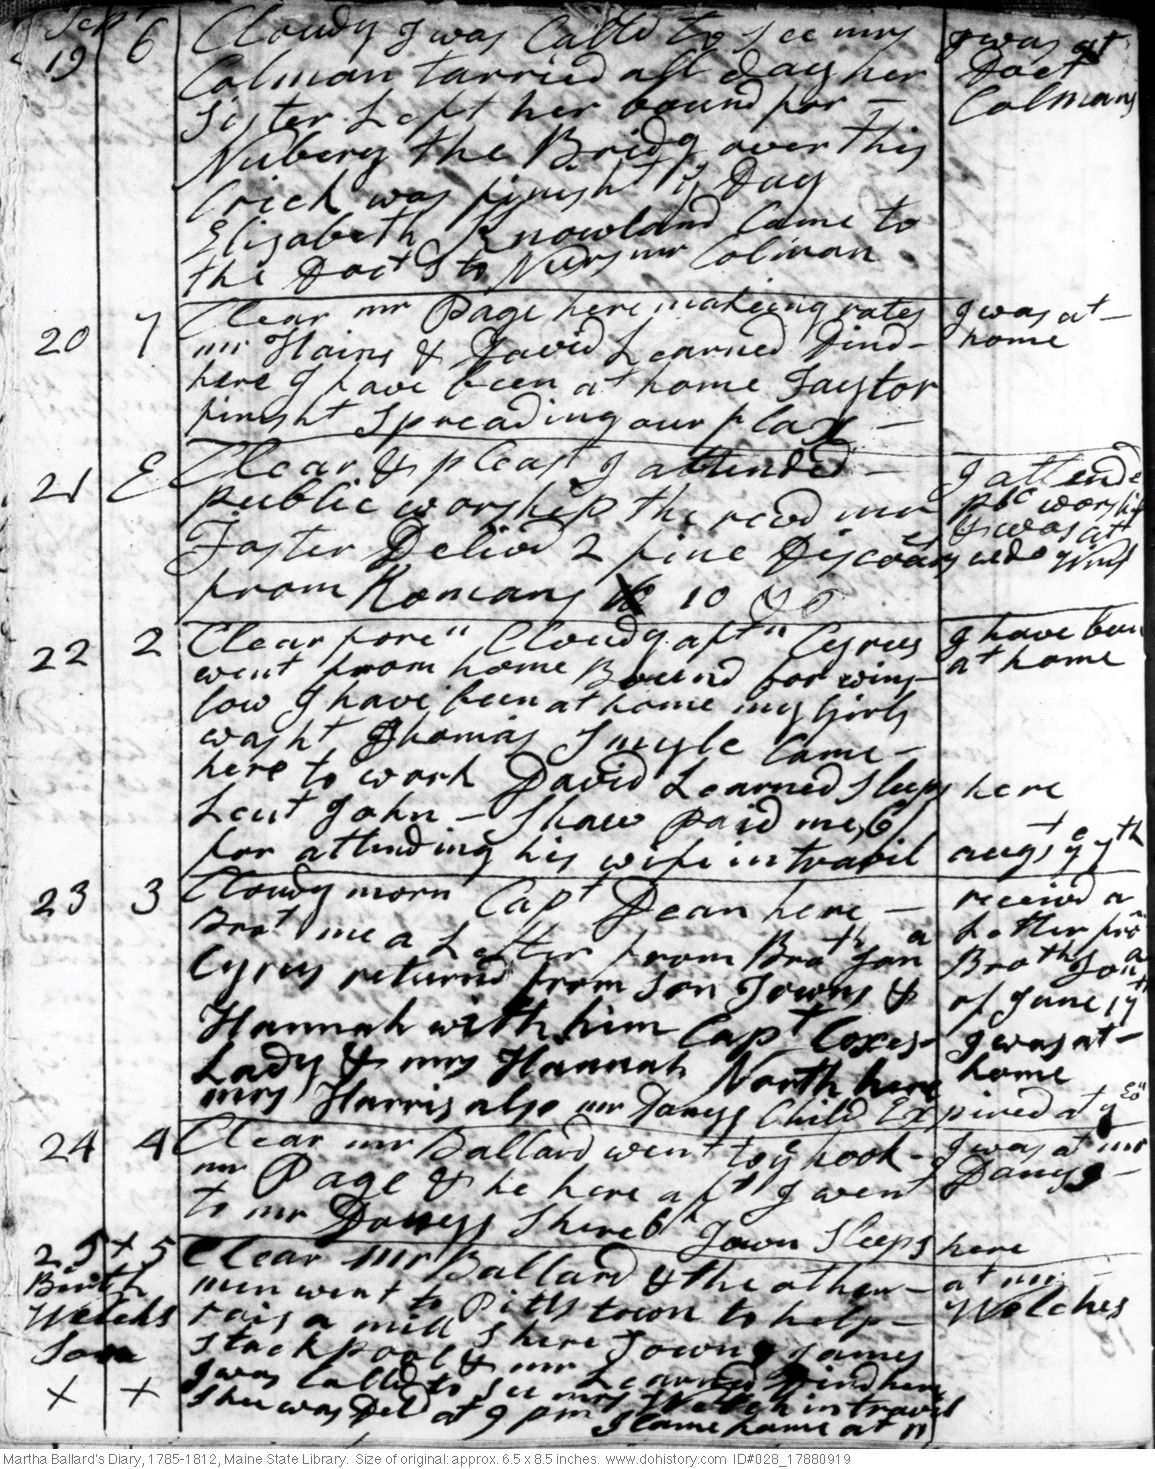 Sep
19 6 Cloudy I was Calld to See mrs
Colman tarried all day her
Sister Left her bound for -
Nubery the Bridg over this
Crick was finisht ye Day
Elizabeth Knowland Came to
the Doct s to Nurs mrs Colman
I was at
Doct
Colmans
20 7 Clear mr Page here makeing rates
mr Hains & David Learned Dind -
here I have been at home Taytor
finisht Spreading our flax -
I was at -
home
21 E Clear & pleast I attended -
public worship the revd mr
Foster Delivd 2 fine Discoarses
from Romans 10
I attend
pbc worship
& was at
22 2 Clear fore" Cloudy aft" Cyrus
went from home Bound for wins-
low I have been at home my Girls
washt Thomas Smyle Came -
here to work David Learned Sleeps here
Leut John - Shaw paid me 6/
for attending his wife in travil augst ye 7th
I have been
at home
23 3 Cloudy morn Capt Dean here -
Brot me a Letter from Broth Jona
Cyrus returnd from Son Towns &
Hannah with him Capt Coxes -
Lady & mrs Hannah North here
mrs Harris also mr Dangs Child Expired at ye
received a
Letter from
Broth Jona
of June 17th
I was at -
home
24 4 Clear mr Ballard went to ye hook -
mr Page & he here aft I went
to mr Dangs Town Sleeps here
I was at mr
Dangs -
25 x 5 Clear mr Ballard & the other -
men went to Pitts town to help -
rais a mill Town James
Stackpool & mr Learned Dind here
I was Calld to see mrs Welch in travil
Shee was Deld at 9 pm I Came home at 11
Birth
Welchs
Son
x x
at mr
Welches
Martha Ballard's Diary, 1785-1812, Maine State Library. Size of original: approx. 6.5 x 8.5 inches. www.dohistory.com ID#028_17880919